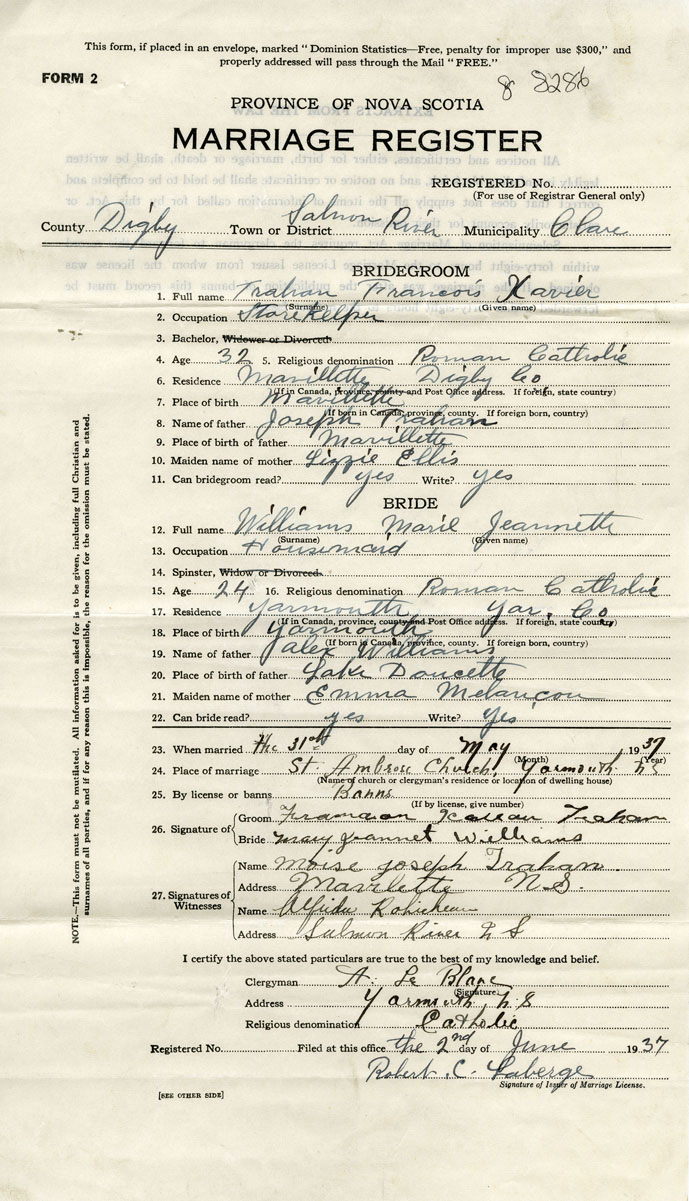 This form, if placed in an envelope, marked "Dominion Statistics—Free, penalty for improper use $300," and
properly addressed will pass through the Mail "FREE."
FORM 2
8 8286
PROVINCE OF NOVA SCOTIA
MARRIAGE REGISTER
REGISTERED No.
(For use of Registrar General only)
County Digby Town or District Salmon River Municipality Clare
BRIDEGROOM
1. Full name Trahan Francois Xavier
(Surname) (Given name)
2. Occupation Storekeeper
3. Bachelor, Widower or Divorced
4. Age 32 5. Religious denomination Roman Catholic
6. Residence Mavillette Digby Co
(If in Canada, province, county and Post Office address. If foreign, state country)
7. Place of birth Mavillette
(If born in Canada, province, county. If foreign born, country)
8. Name of father Joseph Trahan
9. Place of birth of father Mavillette
10. Maiden name of mother Lizzie Ellis
11. Can bridegroom read? yes Write? yes
BRIDE
12. Full name Williams Marie Jeannette
(Surname) (Given name)
13. Occupation Housemaid
14. Spinster, Widow or Divorced
15. Age 24 16. Religious denomination Roman Catholic
17. Residence Yarmouth Yar. Co
(If in Canada, province, county and Post Office address. If foreign, state country)
18. Place of birth Yarmouth
(If born in Canada, province, county. If foreign born, country)
19. Name of father Alex Williams
20. Place of birth of father Lake Doucette
21. Maiden name of mother Emma Melancon
22. Can bride read? yes Write? Yes
23. When married the 31st day of May 1937
(Month) (Year)
24. Place of marriage St. Ambrose Church, Yarmouth N S
(Name of church or clergyman's residence or location of dwelling house)
25. By license or banns Banns
(If by license, give number)
26. Signature of
Groom Trahan
Bride Mary Jeannet Williams
27. Signatures of Witnesses
Name Moise Joseph Trahan
Address Mavilette N.S.
Name Robicheau
Address Salmon River N S
I certify the above stated particulars are true to the best of my knowledge and belief.
Clergyman A. Le Blanc
(Signature)
Address Yarmouth, N. S
Religious denomination Catholic
Registered No. Filed at this office the 2nd day of June 1937
Robert C. Laberge
Signature of Issuer of Marriage License.
[SEE OTHER SIDE]
NOTE.—This form must not be mutilated. All information asked for is to be given, including full Christian and
surnames of all parties, and if for any reason this is impossible, the reason for the omission must be stated.